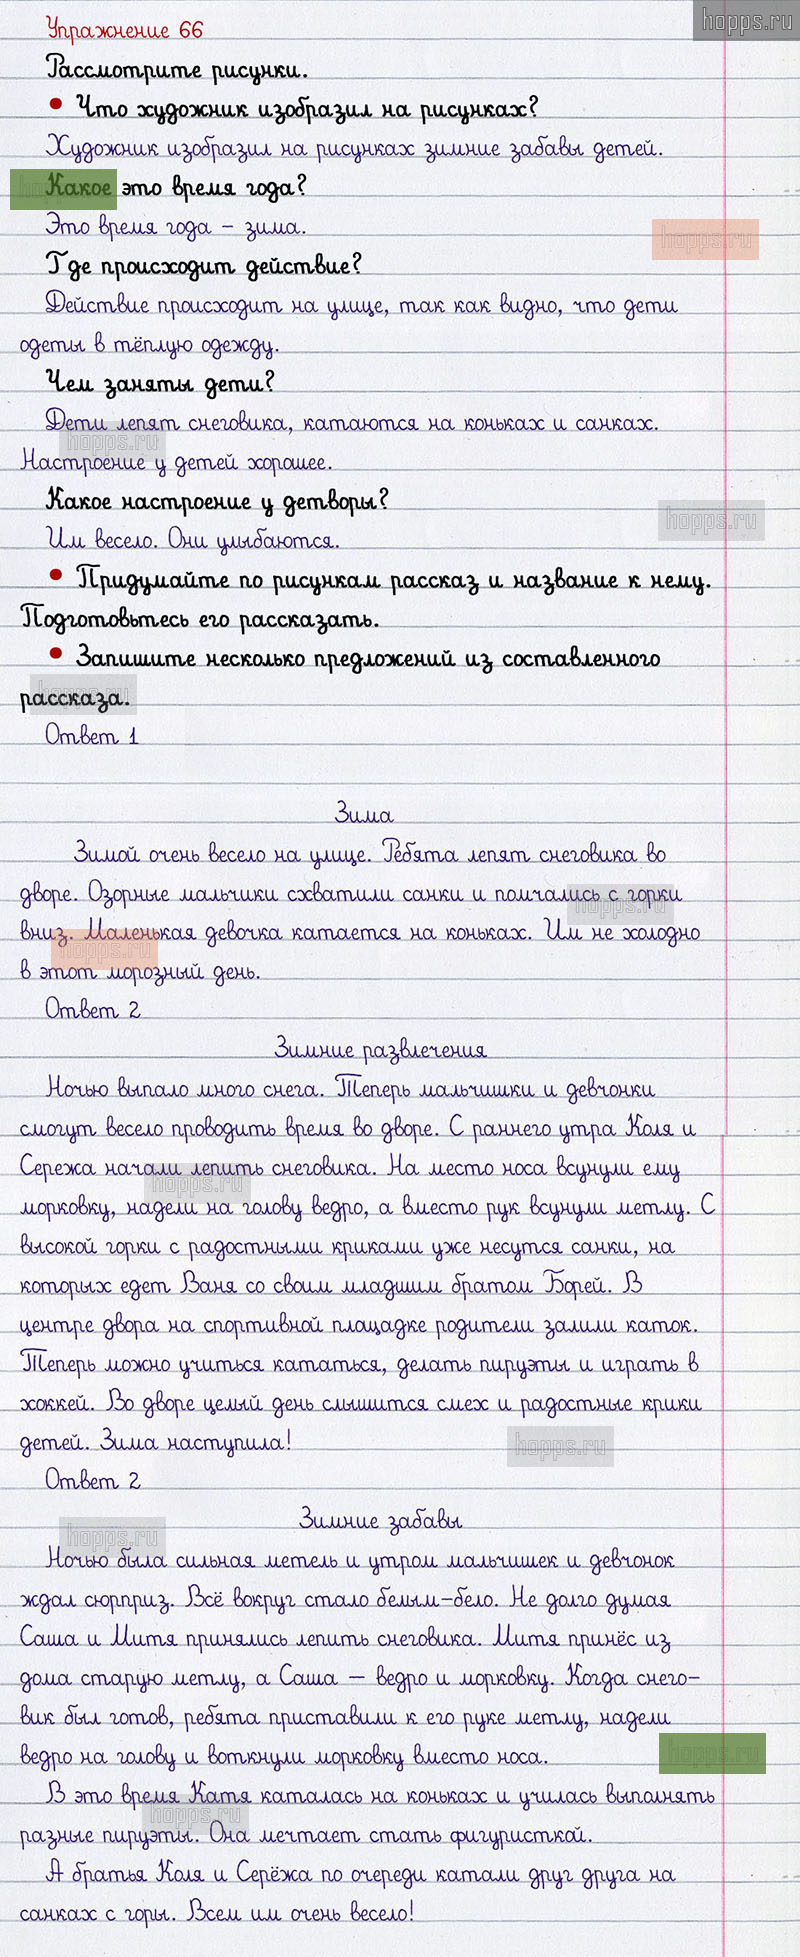 hopps.ru
Упражнение 66
Рассмотрите рисунки.
• Что художник изобразил на рисунках?
Художник изобразил на рисунках зимние забавы детей.
Какое это время года?
Это время года – зима.
hopps.ru
Где происходит действие?
Действие происходит на улице, так как видно, что дети
одеты в тёплую одежду.
Чем заняты дети?
Дети лепят снеговика, катаются на коньках и санках.
hopps.ru
Настроение у детей хорошее.
Какое настроение у детворы?
hopps.ru
Им весело. Они улыбаются.
• Придумайте по рисункам рассказ и название к нему.
Подготовьтесь его рассказать.
• Запишите несколько предложений из составленного
hopps.ru
рассказа.
Ответ 1
Зима
Зимой очень весело на улице. Ребята лепят снеговика во
дворе. Озорные мальчики схватили санки и помчались с горки
hopps.ru
вниз. Маленькая девочка катается на коньках. Им не холодно
hopps.ru
в этот морозный день.
Ответ 2
Зимние развлечения
Ночью выпало много снега. Теперь мальчишки и девчонки
смогут весело проводить время во дворе. С раннего утра Коля и
Сережа начали лепить снеговика. На место носа всунули ему
hopps.ru
морковку, надели на голову ведро, а вместо рук всунули метлу. С
высокой горки с радостными криками уже несутся санки, на
которых едет Ваня со своим младшим братом Борей. В
центре двора на спортивной плацадке родители залили каток.
Теперь можно учиться кататься, делать пируэты и играть в
хоккей. Во дворе целый день слышится смех и радостные крики
детей. Зима наступила!
hopps.ru
Ответ 2
Зимние забавы
hopps.ru
Ночью была сильная метель и утром мальчишек и девчонок
ждал сюрприз. Всё вокруг стало белым-бело. Не долго думая
Саша и Митя принялись лепить снеговика. Митя принёс из
дома старую метлу, а Саша – ведро и морковку. Когда снего-
вик был готов, ребята приставили к его руке метлу, надели
ведро на голову и воткнули морковку вместо носа.
hopps.ru
В это время Катя каталась на коньках и училась выполнять
hopps.ru
разные пируэты. Она мечтает стать фигуристкой.
А братья Коля и Серёжа по очереди катали друг друга на
санках с горы. Всем им очень весело!